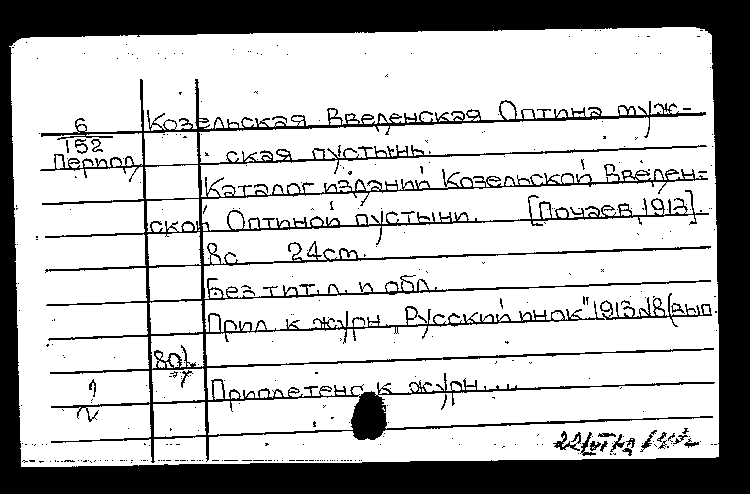 6
152
Период
Козельская Введенская Оптина муж-
ская пустынь.
Каталог изданий Козельской Введен-
ской Оптиной пустыни. [Почаев, 1913].
8с 24см.
Без тит. л. и обл.
Прил. к журн. „Русский инок" 1913 №8 (вып.
Приплетено к журн....